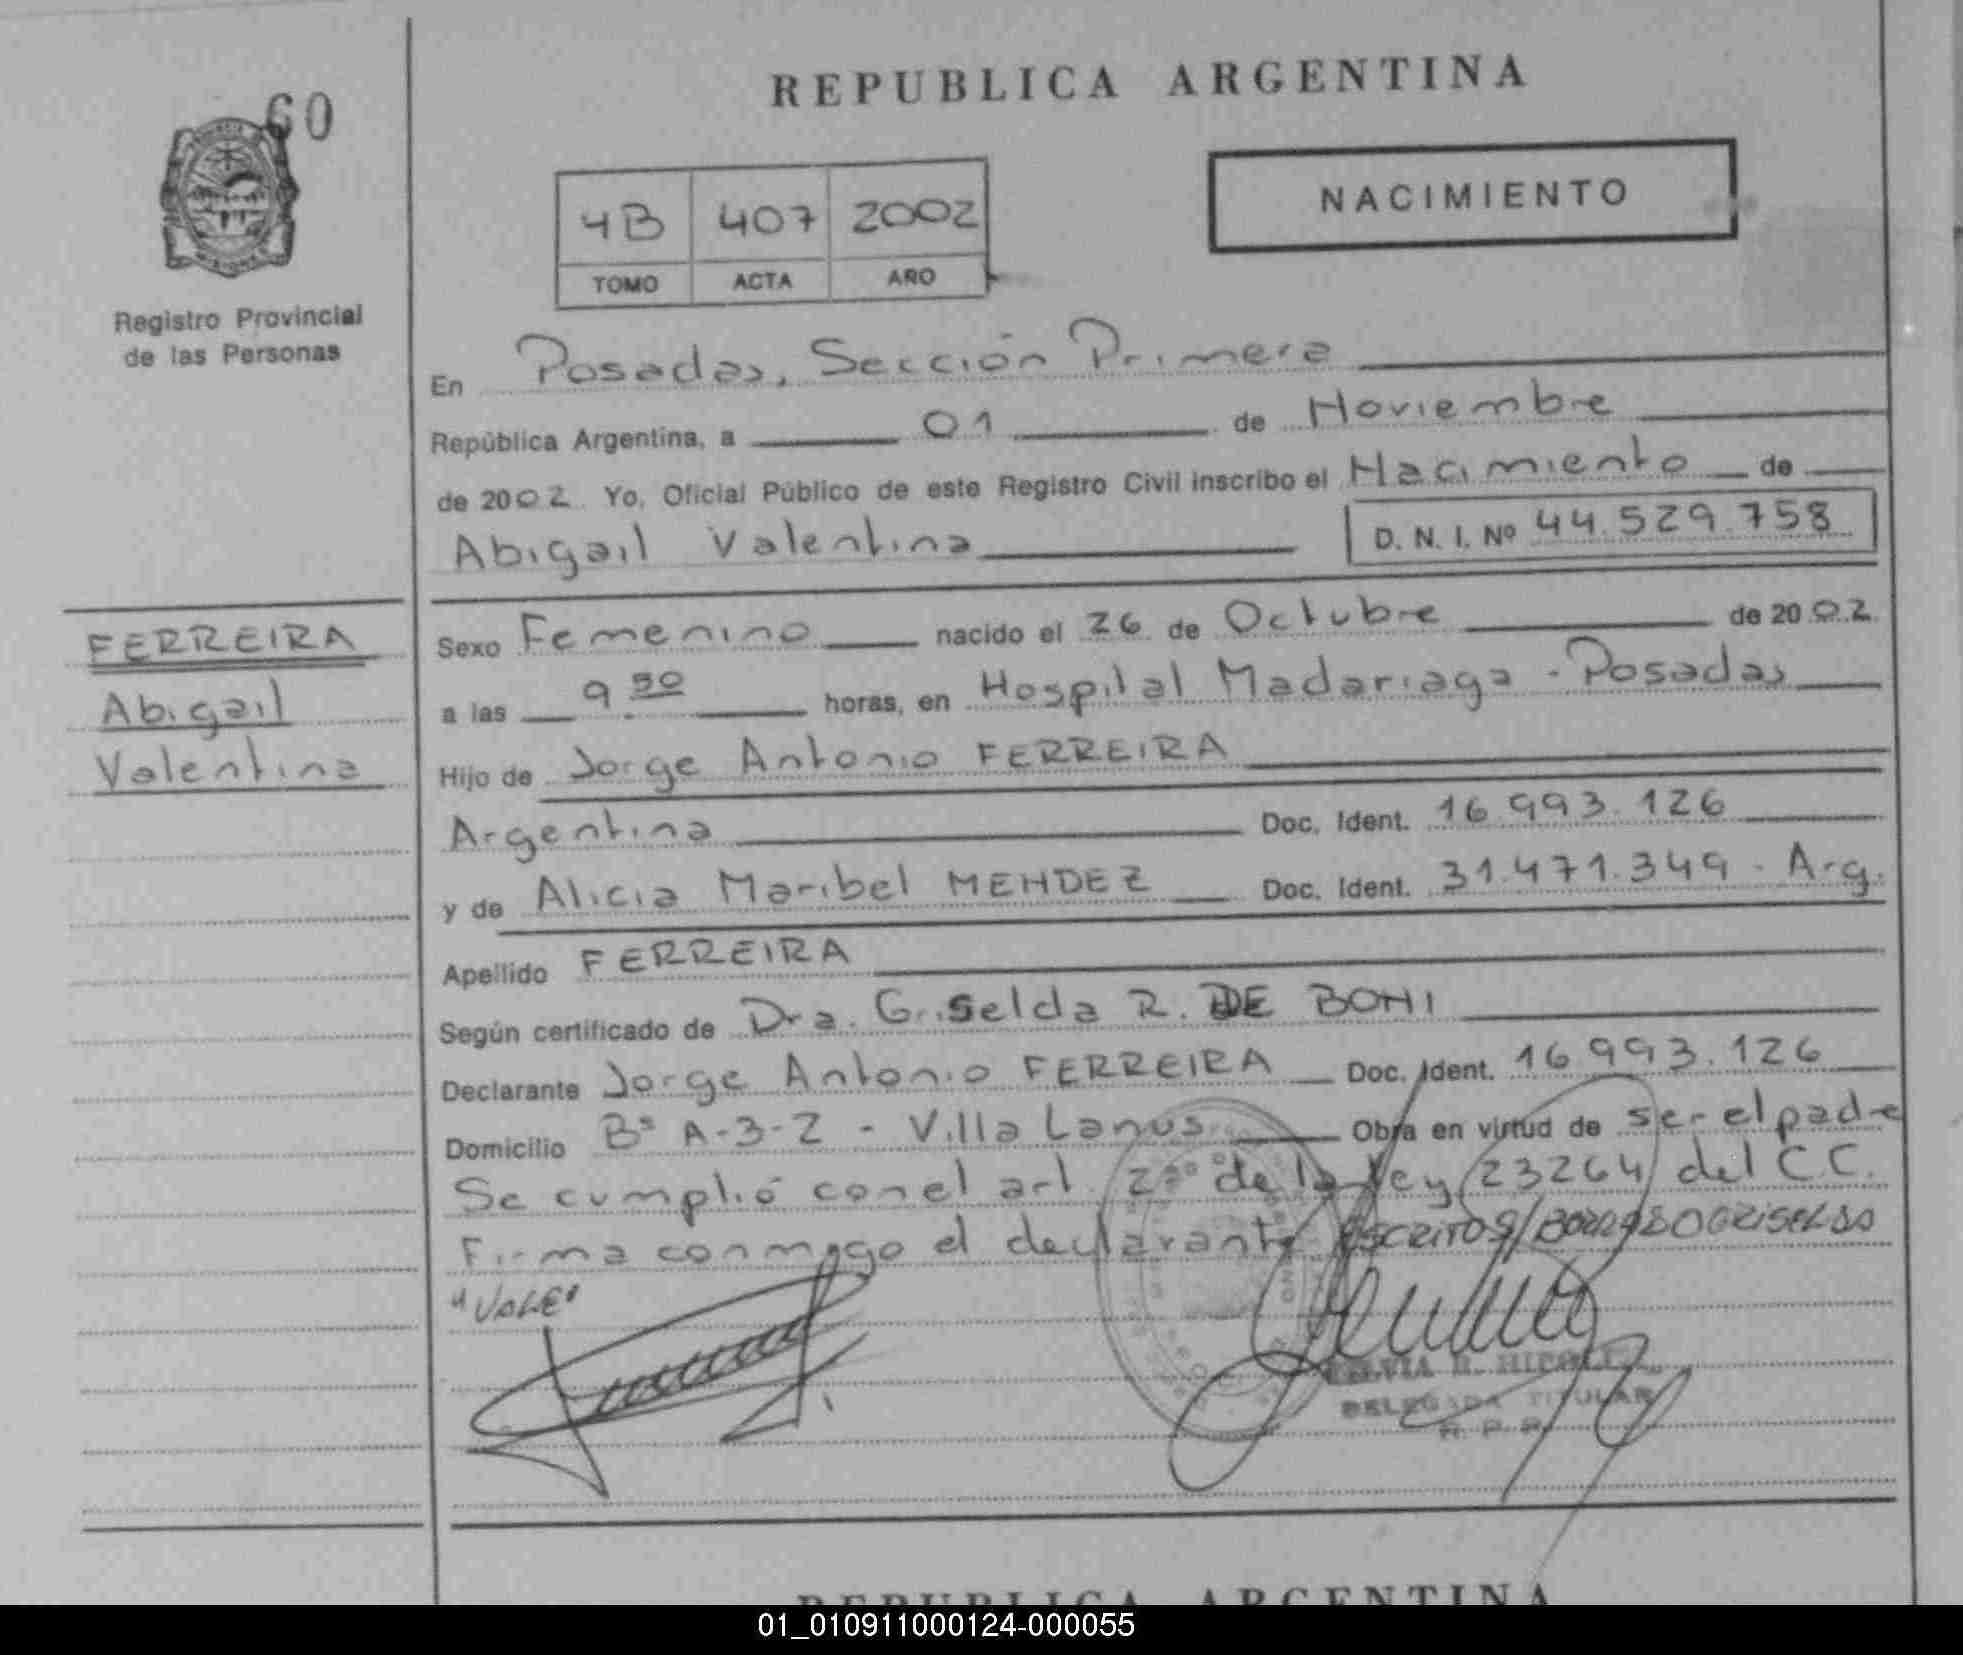 60
REPUBLICA ARGENTINA
NACIMIENTO
4B 407 2002
TOMO ACTA AÑO
Registro Provincial
de las Personas
En Posadas, Sección Primera
República Argentina, a 01 de Noviembre
de 2002. Yo, Oficial Público de este Registro Civil inscribo el Nacimiento de
Abigail Valentina D. N. I. Nº 44.529.758
FERREIRA
Abigail
Valentina
Sexo Femenino nacido el 26 de Octubre de 2002
a las 9 horas, en Hospital Madariaga - Posadas
Hijo de Jorge Antonio FERREIRA
Argentina Doc. Ident. 16.993.126
y de Alicia Maribel MENDEZ Doc. Ident. 31.471.349 - Arg.
Apellido FERREIRA
Según certificado de Dra. Griselda R. DE BONI
Declarante Jorge Antonio FERREIRA Doc. Ident. 16.993.126
Domicilio Bº A-3-2 - Villa Lanus Obra en virtud de ser el padre
Se cumplió con el art. de la ley 23264 del C C.
Firma conmigo el declarante ESCRITO S/BORRADO GRISELDA
"VALE"
DELEGADA TITULAR
R. P. P.
REPUBLICA ARGENTINA
01_010911000124-000055